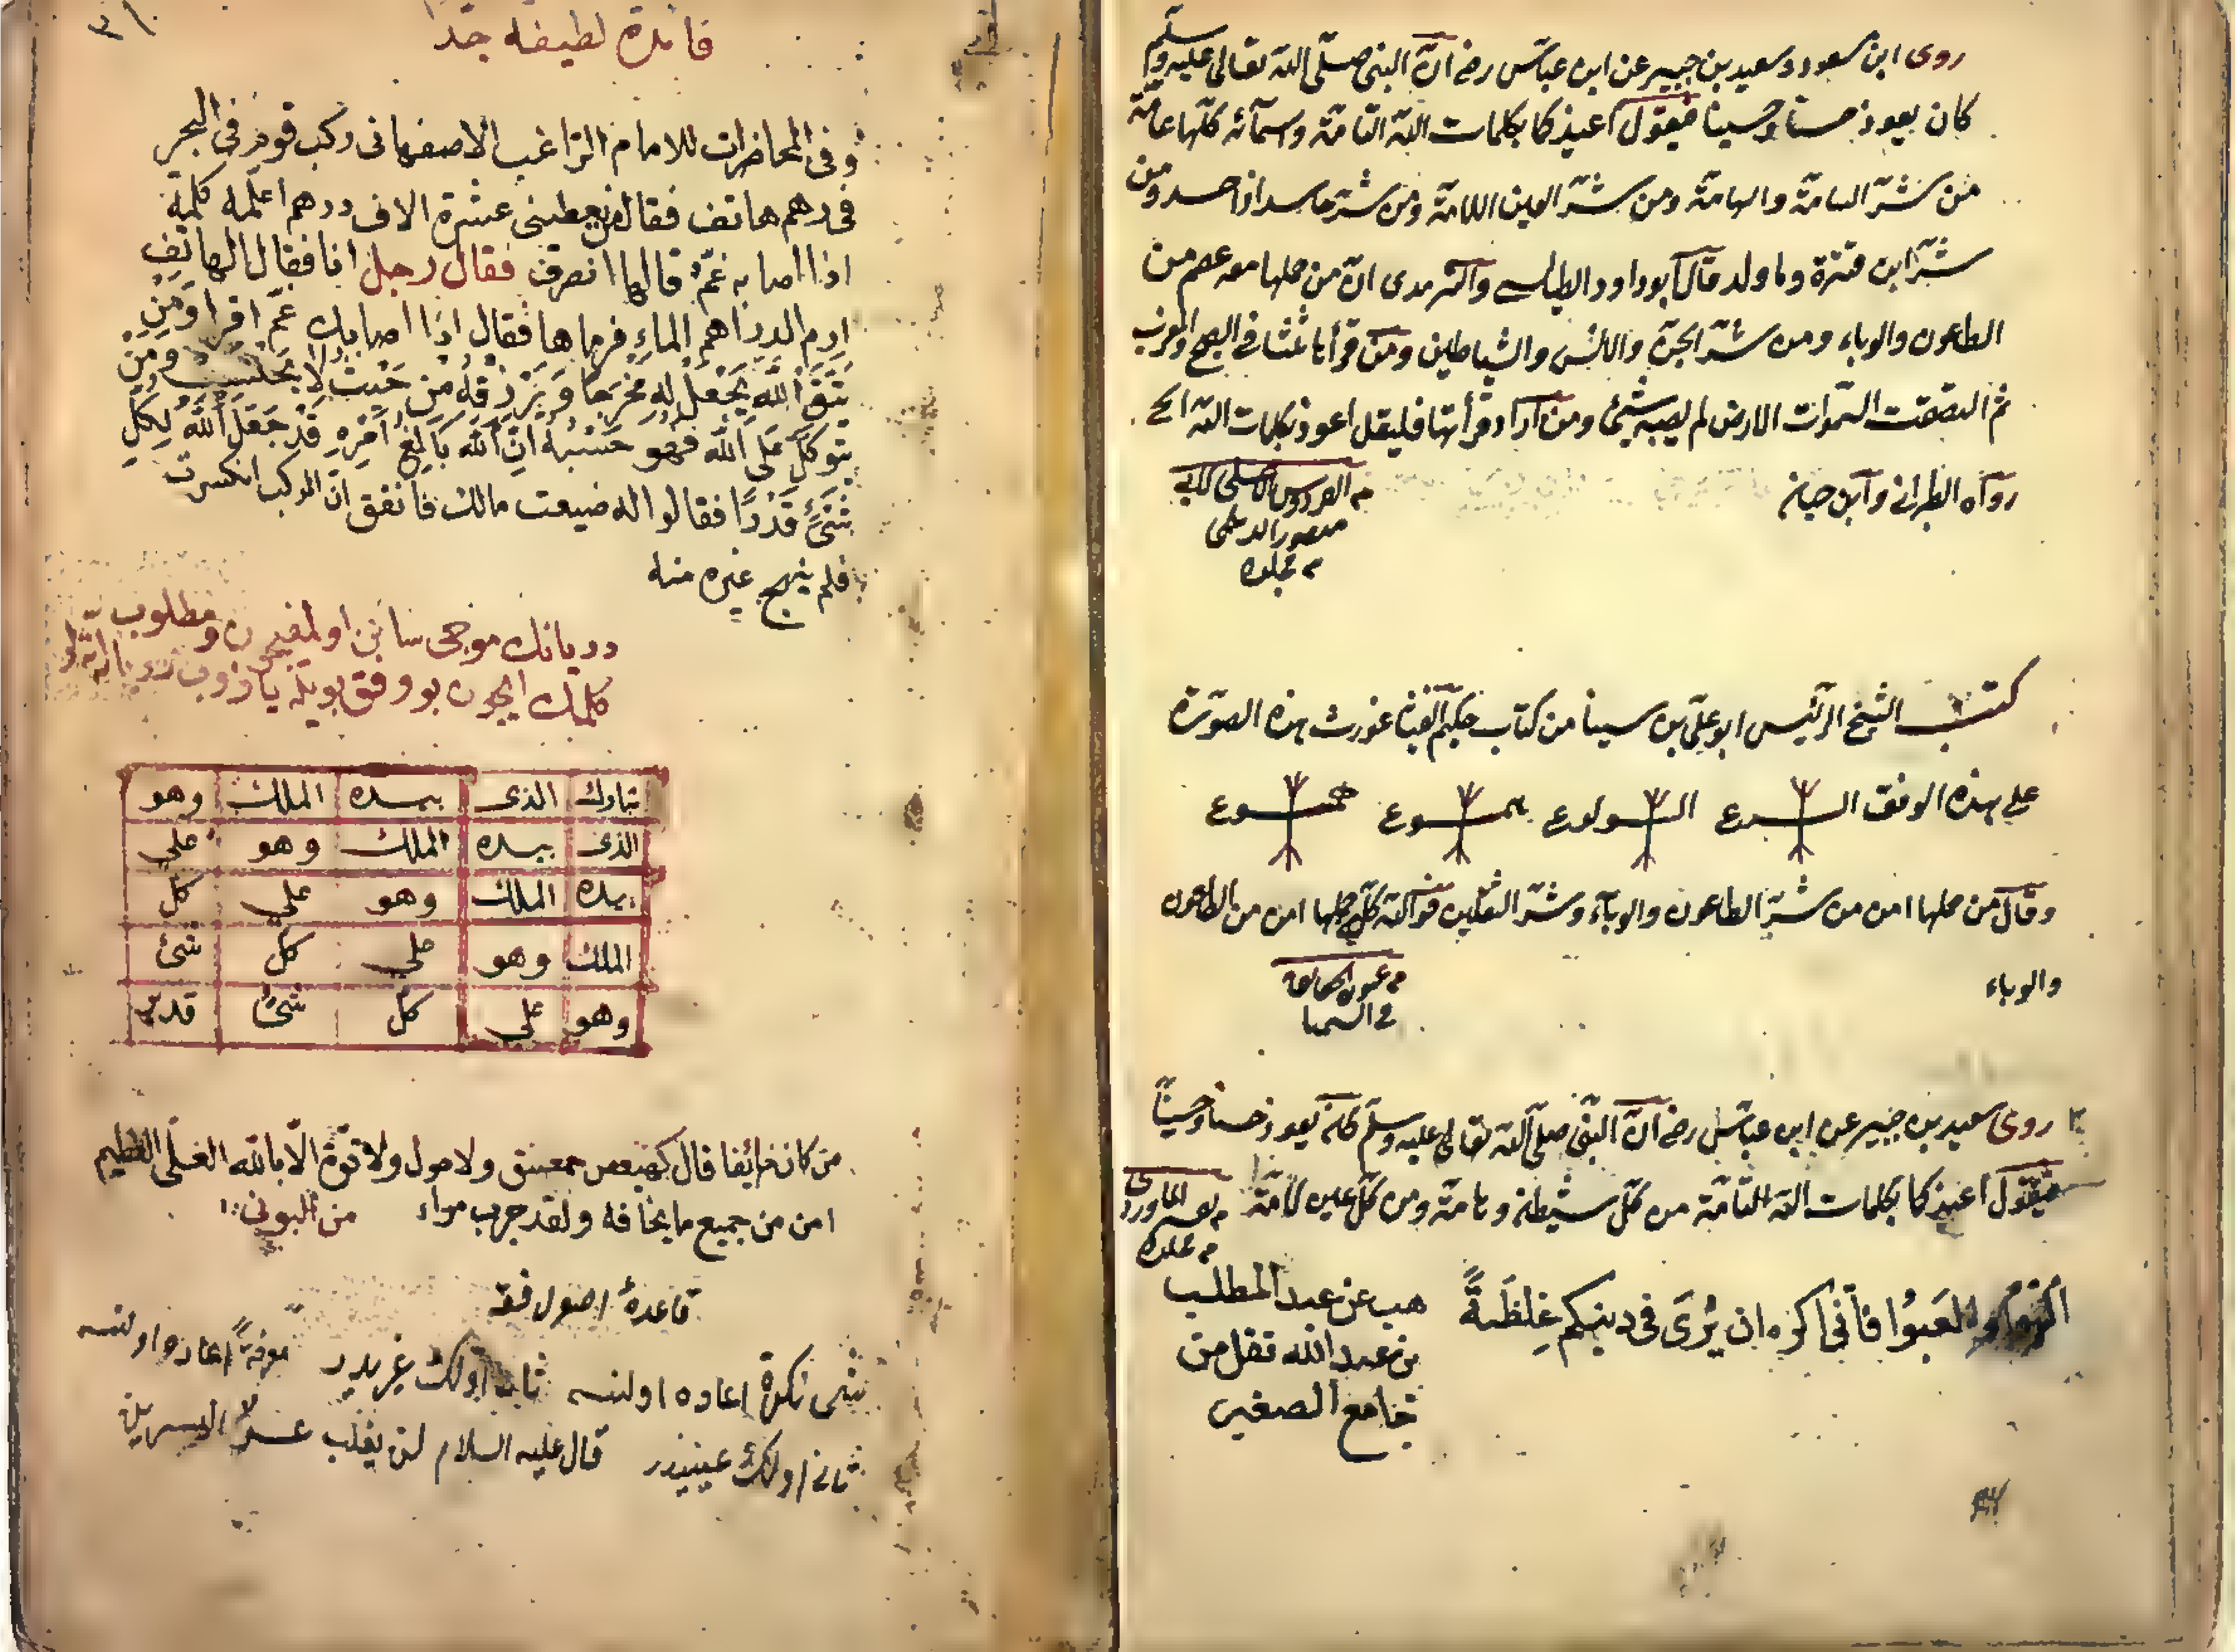 روى ابن مسعود وسعيد بن جبير عن ابن عباس رض ان النبى صلى الله تعالى عليه وسلم
كان يعوذ حسنا وحسينا فيقول اعيذكما بكلمات الله التامة واسمآئه كلها عامة
من شر السامة والهامة ومن شر العين اللامة ومن شر حاسد اذا حسد ومن
شر ابن قترة وما ولد قال ابو داود الطيالسى والترمدى ان من حملها معه عصم من
الطاعون والوباء ومن شر الجن والانس والشياطين ومن قرأها ثلثا فى الصبح والمغرب
ثم التصقت السموات الارض لم يصبه شيئا ومن اراد قرأتها فليقل اعوذ بكلمات الله الخ
رواه الطبرانى وابن حبان
من الفردوس الاعلى لابى
منصور الديلمى
كتب الشيخ الرئيس ابو على بن سينا من كتاب حكيم الفيثاغورث هذه الصورة
على هذه الوفق
وقال من حملها امن من شر الطاعون والوبآء وشر الثقلين فوالله كل من حملها امن من الطاعون
والوباء
روى سعيد بن جبير عن ابن عباس رض ان النبى صلى الله تعالى عليه وسلم كان يعوذ حسنا وحسينا
فيقول اعيذكما بكلمات الله التامة من كل شيطان وهامة ومن كل عين لامة
والعبوا فانى اكره ان يرى فى دينكم غلظة
هب عن عبد المطلب
بن عبد الله نقل من
جامع الصغير
فائدة لطيفه جدا
وفى المحاضرات للامام الراغب الاصفهانى ركب قوم فى البحر
فحدهم هاتف فقال من يعطينى عشرة الاف درهم اعلمه كلمة
اذا اصابه غم قالها انصرف فقال رجل انا فقال الهاتف
ارم الدراهم الماء فرماها فقال اذا اصابك غم اقرا ومن
يتق الله يجعل له مخرجا ويرزقه من حيث لا يحتسب ومن
يتوكل على الله فهو حسبه ان الله بالغ امره قد جعل الله لكل
شئ قدرا فقالوا له ضيعت مالك فاتفق ان المركب انكسرت
فلم ينج غيره منه
دريانك موجى ساكن اولمغيچون ومطلوب
كلمك ايچون بو وفق بويله يازوب
تبارك الذى بيده الملك وهو
الذى بيده الملك وهو على
بيده الملك وهو على كل
الملك وهو على كل شئ
وهو على كل شئ قدير
من كان خائفا قال كهيعص حمعسق ولا حول ولا قوة الا بالله العلى العظيم
امن من جميع ما يخافه ولقد جرب مرارا من البونى
قاعدۀ اصول فقه
شئ نكرۀ اعاده اولنسه ثانى اولك غيريدر معرفة اعاده اولنسه
ثانى اولك عينيدر قال عليه السلام لن يغلب عسر اليسرين